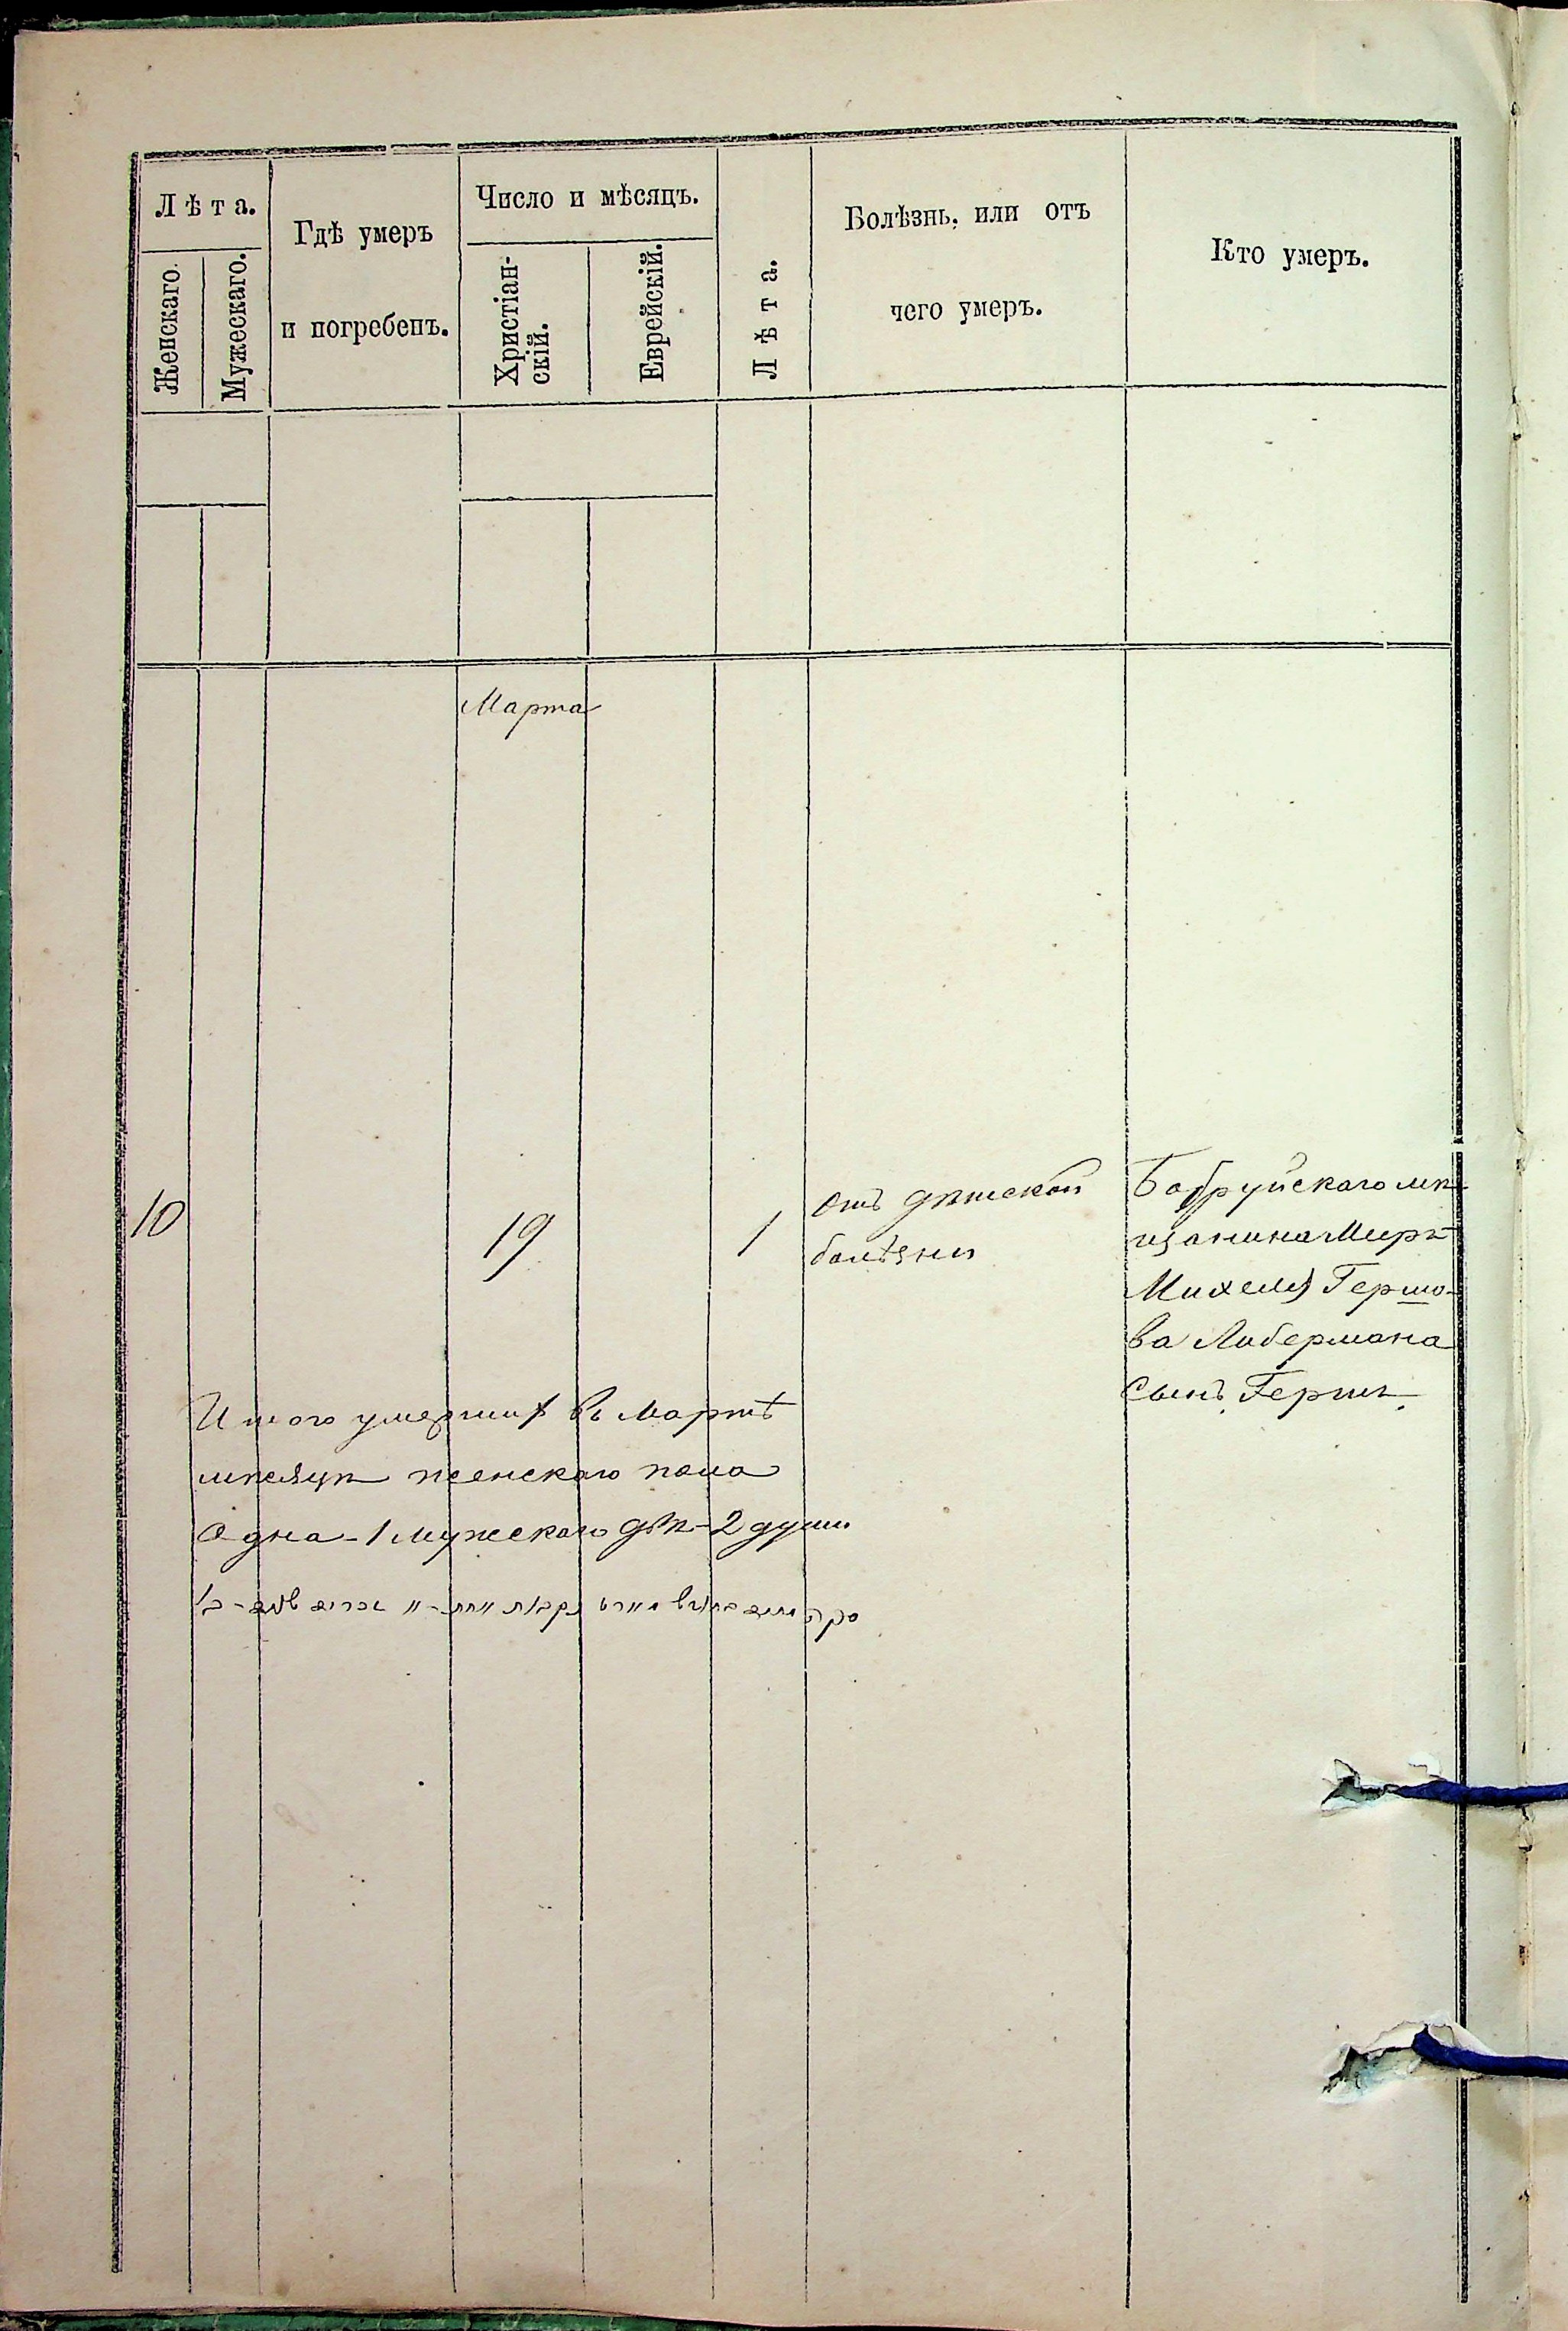 Лѣта.
Женскаго.
Мужескаго.
Гдѣ умеръ
и погребенъ.
Число и мѣсяцъ.
Христіан-
скій.
Еврейскій.
Лѣта.
Болѣзнь, или отъ
чего умеръ.
Кто умеръ.
Марта
10
19
1
отъ дѣтской
болѣзни
Бобруйскаго мѣ-
щанина
Михеля Гершо-
ва Либермана
Сынъ Гершъ
Итого умершихъ въ Мартѣ
мѣсяцѣ женскаго пола
одна - 1 мужскаго двѣ - 2 души